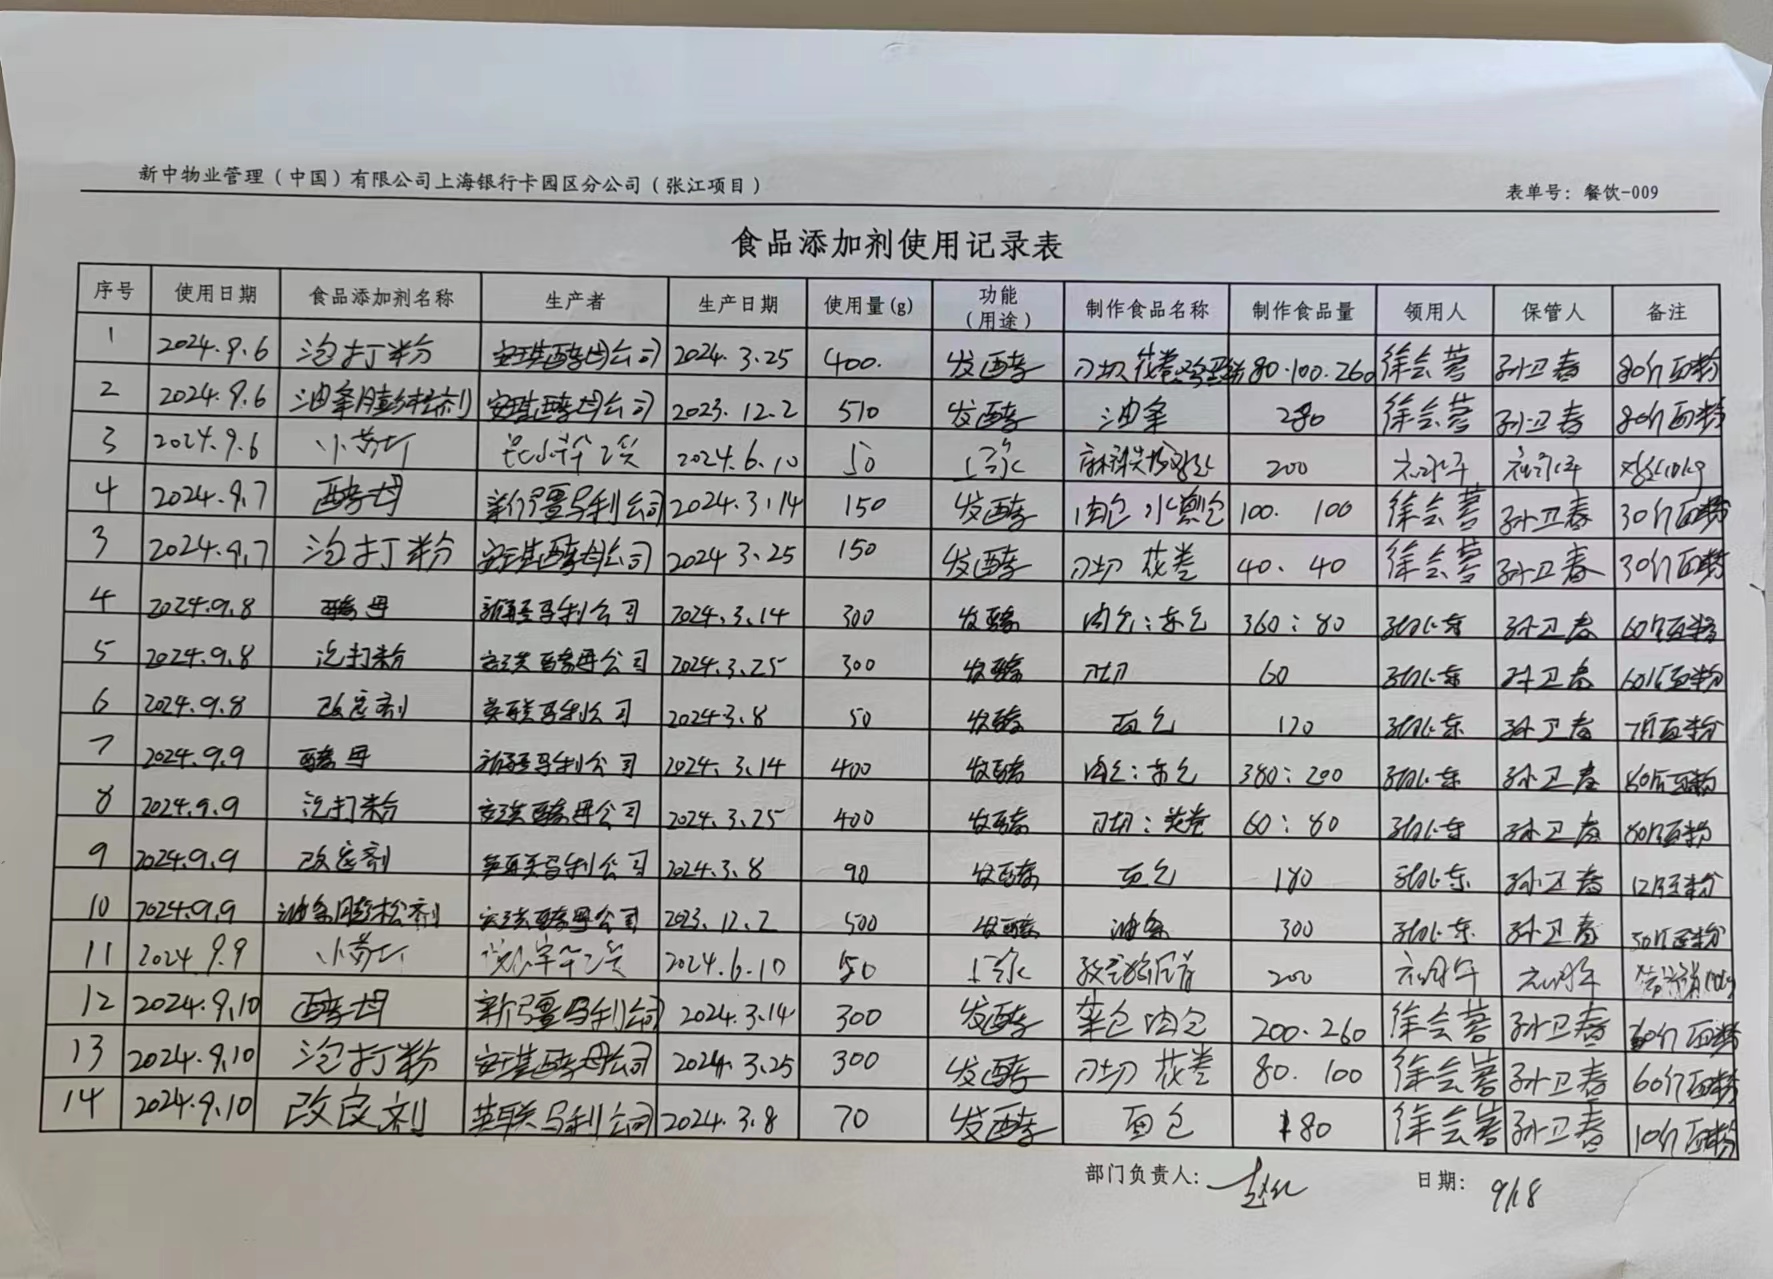 新中物业管理（中国）有限公司上海银行卡园区分公司（张江项目）
表单号：餐饮-009
食品添加剂使用记录表
序号 使用日期 食品添加剂名称 生产者 生产日期 使用量(g) 功能（用途） 制作食品名称 制作食品量 领用人 保管人 备注
1 2024.9.6 泡打粉 安琪酵母公司 2024.3.25 400. 发酵 刀切 花卷 80.100.260 徐会营 孙卫春 80斤面粉
2 2024.9.6 油条膨松剂 安琪酵母公司 2023.12.2 510 发酵 油条 280 徐会营 孙卫春 80斤面粉
3 2024.9.6 小苏打 2024.6.10 50 上浆 200
4 2024.9.7 酵母 新疆马利公司 2024.3.14 150 发酵 肉包 水煎包 100. 100 徐会营 孙卫春 30斤面粉
3 2024.9.7 泡打粉 安琪酵母公司 2024 3.25 150 发酵 刀切 花卷 40. 40 徐会营 孙卫春 30斤面粉
4 2024.9.8 酵母 新疆马利公司 2024.3.14 300 发酵 肉包：菜包 360：80 孙卫春 60斤面粉
5 2024.9.8 泡打粉 安琪酵母公司 2024.3.25 300 发酵 刀切 60 孙卫春 60斤面粉
6 2024.9.8 改良剂 英联马利公司 2024.3.8 50 发酵 面包 120 孙卫春 7斤面粉
7 2024.9.9 酵母 新疆马利公司 2024.3.14 400 发酵 肉包：菜包 380：200 孙卫春 80斤面粉
8 2024.9.9 泡打粉 安琪酵母公司 2024.3.25 400 发酵 刀切：花卷 60：80 孙卫春 80斤面粉
9 2024.9.9 改良剂 英联马利公司 2024.3.8 90 发酵 面包 180 孙卫春 12斤面粉
10 2024.9.9 油条膨松剂 安琪酵母公司 2023.12.2 500 发酵 油条 300 孙卫春 50斤面粉
11 2024.9.9 小苏打 2024.6.10 50 上浆 200
12 2024.9.10 酵母 新疆马利公司 2024.3.14 300 发酵 菜包 肉包 200.260 徐会营 孙卫春 60斤面粉
13 2024.9.10 泡打粉 安琪酵母公司 2024. 3.25 300 发酵 刀切 花卷 80. 100 徐会营 孙卫春 60斤面粉
14 2024.9.10 改良剂 英联马利公司 2024.3.8 70 发酵 面包 180 徐会营 孙卫春 10斤面粉
部门负责人： 日期：9/18